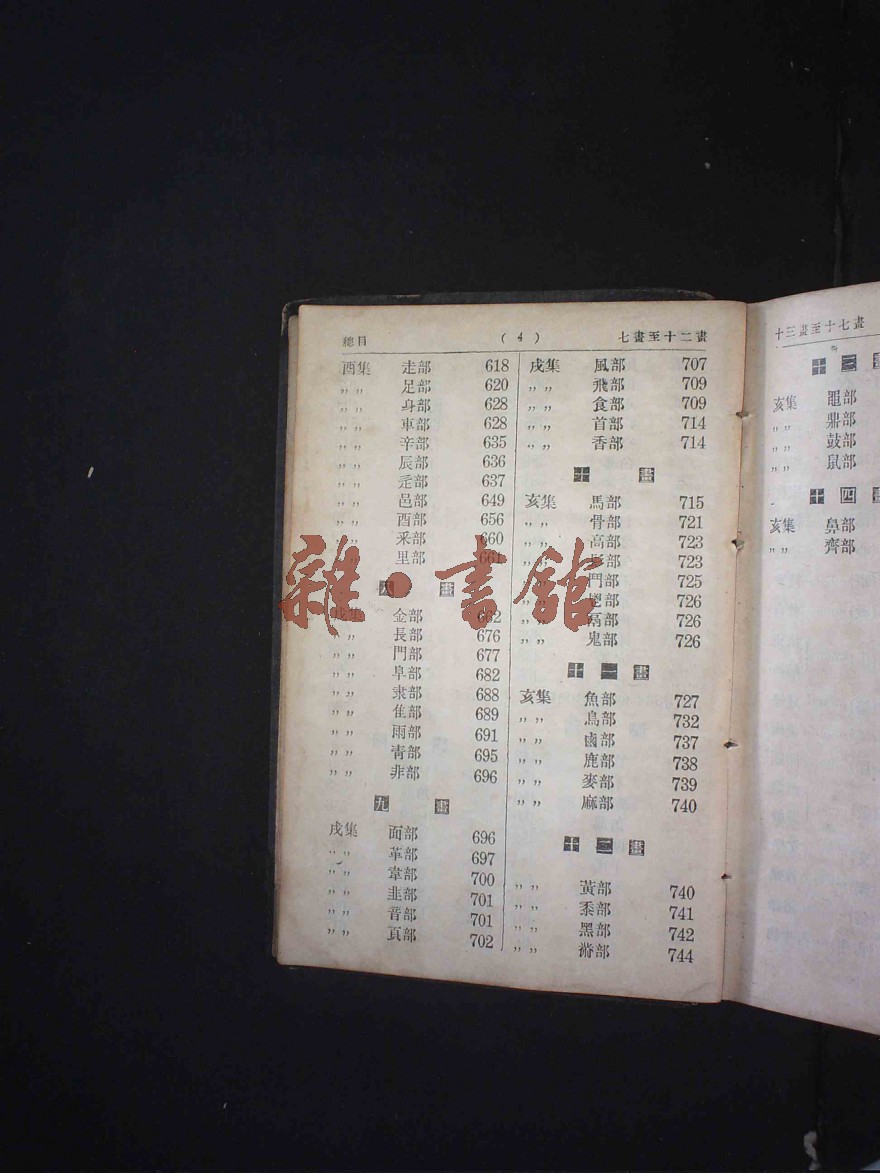 總目 (4) 七畫至十二畫
酉集 走部 618
〃〃 足部 620
〃〃 身部 628
〃〃 車部 628
〃〃 辛部 635
〃〃 辰部 636
〃〃 辵部 637
〃〃 邑部 649
〃〃 酉部 656
〃〃 釆部 660
〃〃 里部 661
畫
戌集 金部 662
〃〃 長部 676
〃〃 門部 677
〃〃 阜部 682
〃〃 隶部 688
〃〃 隹部 689
〃〃 雨部 691
〃〃 靑部 695
〃〃 非部 696
九畫
戌集 面部 696
〃〃 革部 697
〃〃 韋部 700
〃〃 韭部 701
〃〃 音部 701
〃〃 頁部 702
戌集 風部 707
〃〃 飛部 709
〃〃 食部 709
〃〃 首部 714
〃〃 香部 714
十畫
亥集 馬部 715
〃〃 骨部 721
〃〃 高部 723
〃〃 部 723
〃〃 鬥部 725
〃〃 鬯部 726
〃〃 鬲部 726
〃〃 鬼部 726
十一畫
亥集 魚部 727
〃〃 鳥部 732
〃〃 鹵部 737
〃〃 鹿部 738
〃〃 麥部 739
〃〃 麻部 740
十二畫
〃〃 黃部 740
〃〃 黍部 741
〃〃 黑部 742
〃〃 黹部 744
十三畫至十七畫
十三畫
亥集 黽部
〃〃 鼎部
〃〃 鼓部
〃〃 鼠部
十四畫
亥集 鼻部
〃〃 齊部
雜·書館